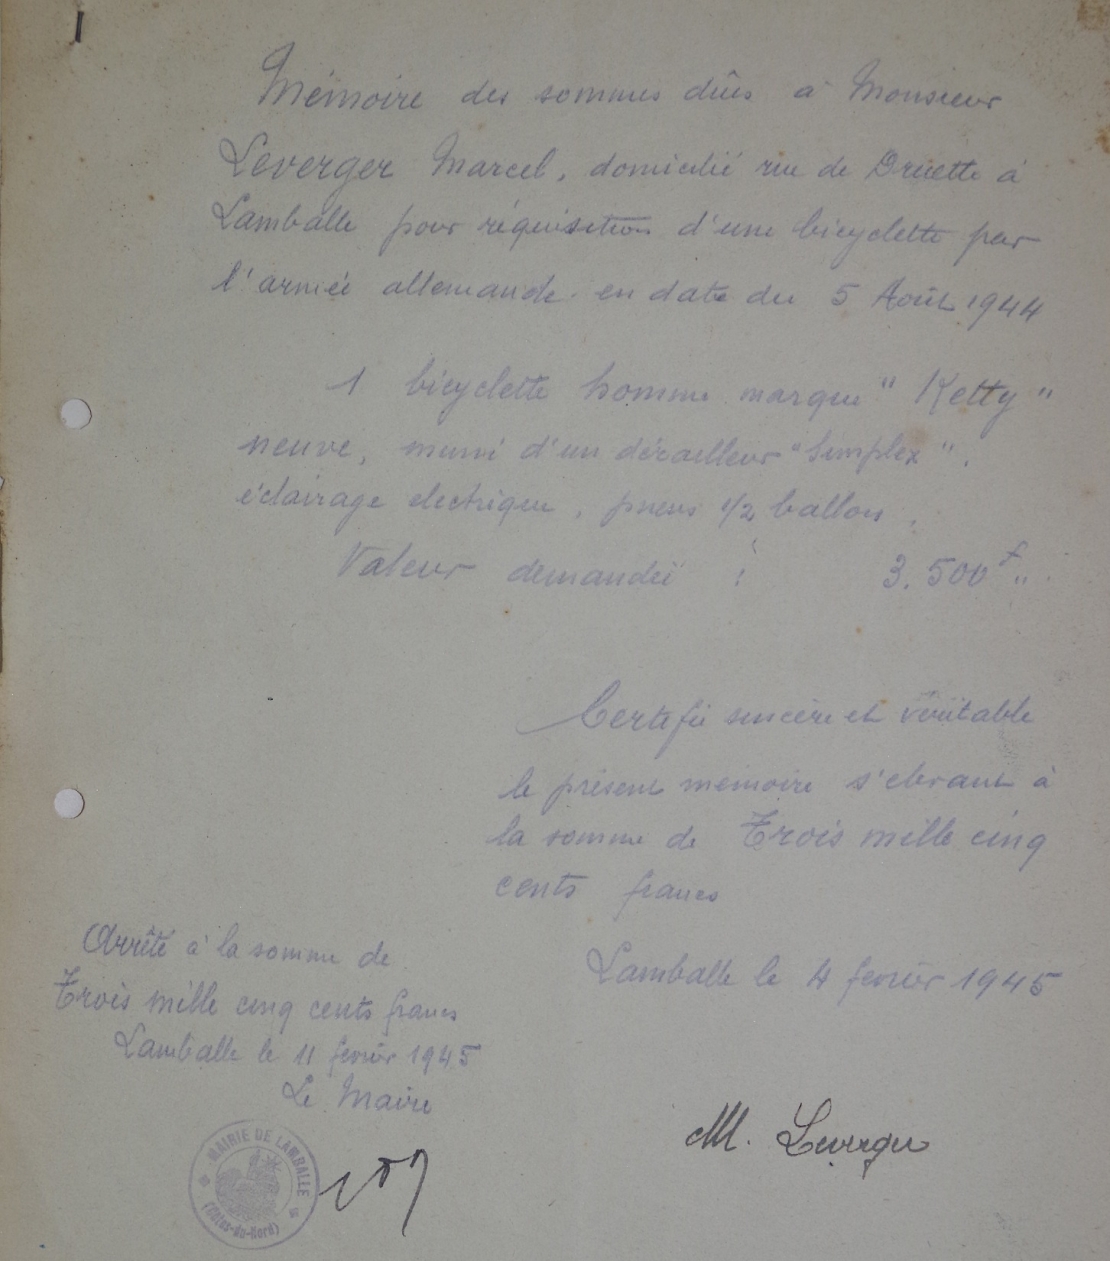 Mémoire des sommes dûes à Monsieur
Leverger Marcel, domicilié rue de Bruette à
Lamballe pour réquisition d'une bicyclette par
l'armée allemande en date du 5 Août 1944
1 bicyclette homme marque "Ketty"
neuve, muni d'un dérailleur "Simplex",
éclairage electrique, pneus 1/2 ballon,
Valeur demandée : 3.500f"
Certifié sincère et véritable
le présent mémoire s'élevant à
la somme de Trois mille cinq
cents francs
Lamballe le 4 février 1945
M. Leverger
Arrêté à la somme de
Trois mille cinq cents francs
Lamballe le 11 février 1945
Le Maire
MAIRIE DE LAMBALLE
(Côtes-du-Nord)